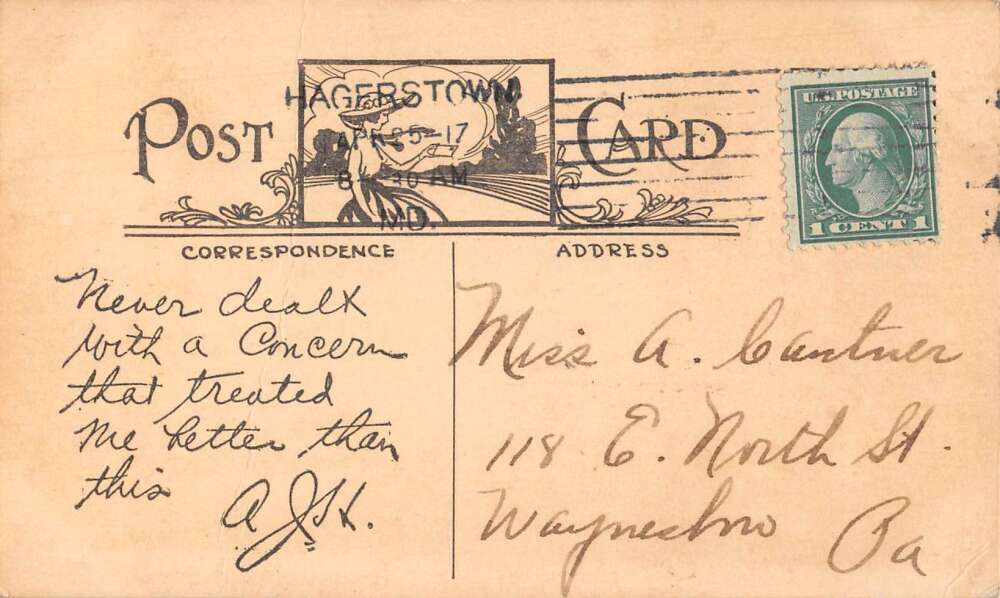 POST CARD
HAGERSTOWN
APR 25-17
8-30 AM
MD.
U.S. POSTAGE
1 CENT 1
CORRESPONDENCE
ADDRESS
Never dealt
with a Concern
that treated
me better than
this
A J H.
Miss A. Cantner
118 E. North St.
Waynesboro
Pa